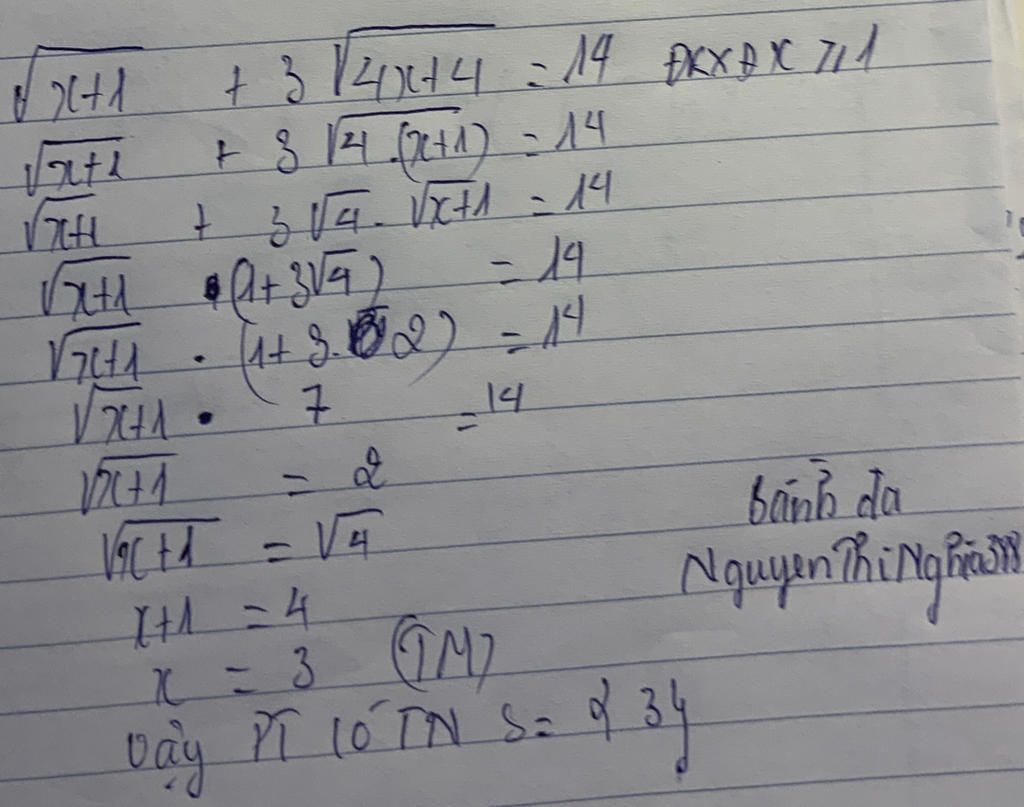 √(x+1) + 3√(4x+4) = 14 ĐKXĐ x ≥ 1
√(x+1) + 3√(4.(x+1)) = 14
√(x+1) + 3√4 . √(x+1) = 14
√(x+1) . (1+3√4) = 14
√(x+1) . (1+3.2) = 14
√(x+1) . 7 = 14
√(x+1) = 2
√(x+1) = √4
x+1 = 4
x = 3 (TM)
Vậy PT có TN S = {3}
Bánh đa
NguyenThiNghia